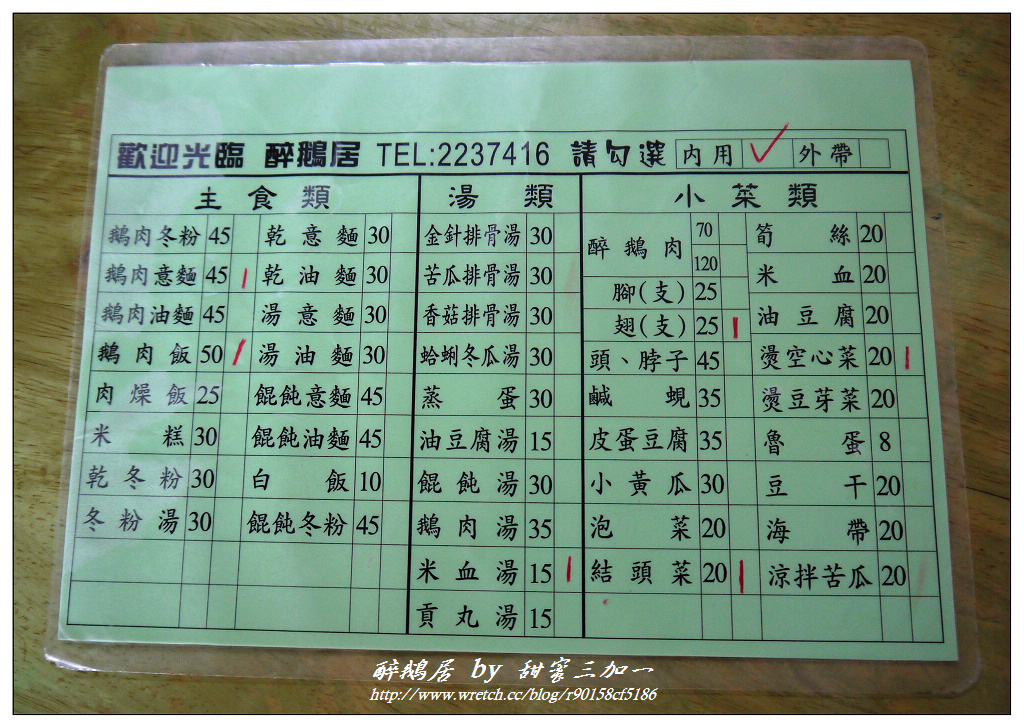 歡迎光臨 醉鵝居 TEL:2237416 請勾選 內用 ✓ 外帶
主食類
鵝肉冬粉 45
鵝肉意麵 45
鵝肉油麵 45
鵝肉飯 50
肉燥飯 25
米糕 30
乾冬粉 30
冬粉湯 30
乾意麵 30
乾油麵 30
湯意麵 30
湯油麵 30
餛飩意麵 45
餛飩油麵 45
白飯 10
餛飩冬粉 45
湯類
金針排骨湯 30
苦瓜排骨湯 30
香菇排骨湯 30
蛤蜊冬瓜湯 30
蒸蛋 30
油豆腐湯 15
餛飩湯 30
鵝肉湯 35
米血湯 15
貢丸湯 15
小菜類
醉鵝肉 70
120
腳(支) 25
翅(支) 25
頭、脖子 45
鹹蜆 35
皮蛋豆腐 35
小黃瓜 30
泡菜 20
結頭菜 20
筍絲 20
米血 20
油豆腐 20
燙空心菜 20
燙豆芽菜 20
魯蛋 8
豆干 20
海帶 20
涼拌苦瓜 20
醉鵝居 by 甜蜜三加一
http://www.wretch.cc/blog/r90158cf5186